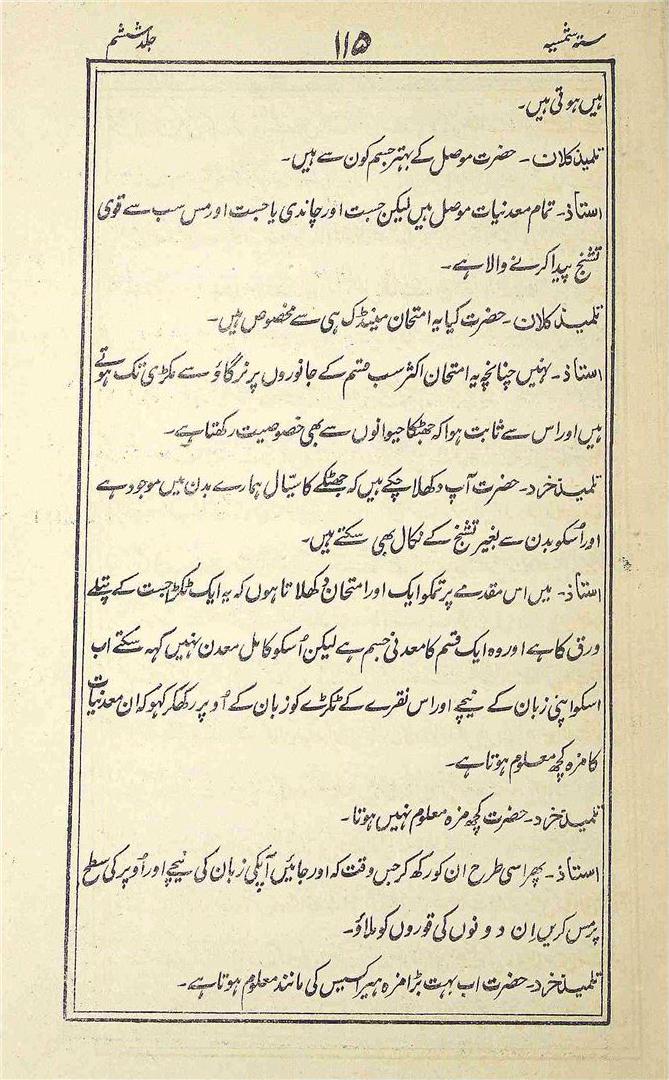 ستہ شمسیہ ۱۱۵ جلد ششم
ہیں ہوتی ہیں۔
تلمیذ کلان۔ حضرت موصل کے بہتر جسم کون سے ہیں۔
استاذ۔ تمام معدنیات موصل ہیں لیکن جست اور چاندی یا جست اور مس سب سے قوی
تشنج پیدا کرنے والا ہے۔
تلمیذ کلان۔ حضرت کیا یہ امتحان مینڈک ہی سے مخصوص ہیں۔
استاذ۔ نہیں چنانچہ یہ امتحان اکثر سب قسم کے جانوروں پر نرگاؤ سے مکڑی تک ہوتے
ہیں اور اس سے ثابت ہوا کہ جھٹکا حیوانوں سے بھی خصوصیت رکھتا ہے۔
تلمیذ خرد۔ حضرت آپ دکھلا چکے ہیں کہ جھٹکے کا سیّال ہمارے بدن میں موجود ہے
اور اُسکو بدن سے بغیر تشنج کے نکال بھی سکتے ہیں۔
استاذ۔ میں اس مقدمے پر تمکو ایک اور امتحان دکھلاتا ہوں کہ یہ ایک ٹکڑا جست کے پتلے
ورق کا ہے اور وہ ایک قسم کا معدنی جسم ہے لیکن اُسکو کامل معدن نہیں کہہ سکتے اب
اسکو اپنی زبان کے نیچے اور اس نقرے کے ٹکڑے کو زبان کے اُوپر رکھکر کہو کہ ان معدنیات
کا مزہ کچھ معلوم ہوتا ہے۔
تلمیذ خرد۔ حضرت کچھ مزہ معلوم نہیں ہوتا۔
استاذ۔ پھر اسی طرح ان کو رکھ کر جس وقت کہ اور جائیں آپکی زبان کی نیچے اور اُوپر کی سطح
پر مس کریں اِن دونوں کی قوروں کو ملاؤ۔
تلمیذ خرد۔ حضرت اب بہت بڑا مزہ ہیرا کسیس کی مانند معلوم ہوتا ہے۔